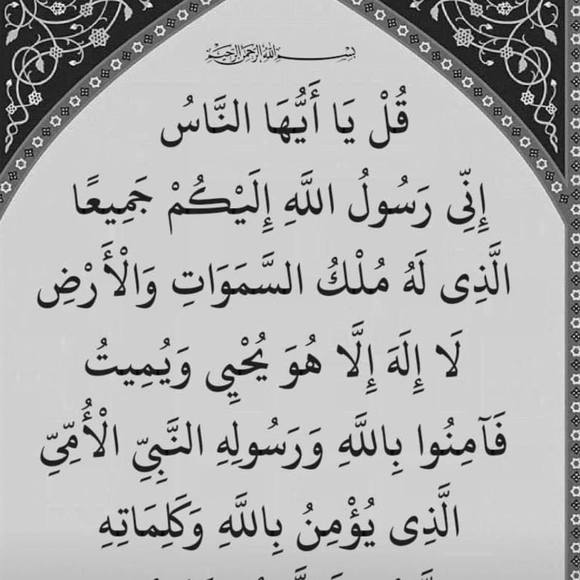 بسم الله الرحمن الرحيم
قُلْ يَا أَيُّهَا النَّاسُ
إِنِّي رَسُولُ اللَّهِ إِلَيْكُمْ جَمِيعًا
الَّذِى لَهُ مُلْكُ السَّمَوَاتِ وَالْأَرْضِ
لَا إِلَهَ إِلَّا هُوَ يُحْيِي وَيُمِيتُ
فَآمِنُوا بِاللَّهِ وَرَسُولِهِ النَّبِيِّ الْأُمِّيِّ
الَّذِى يُؤْمِنُ بِاللَّهِ وَكَلِمَاتِهِ